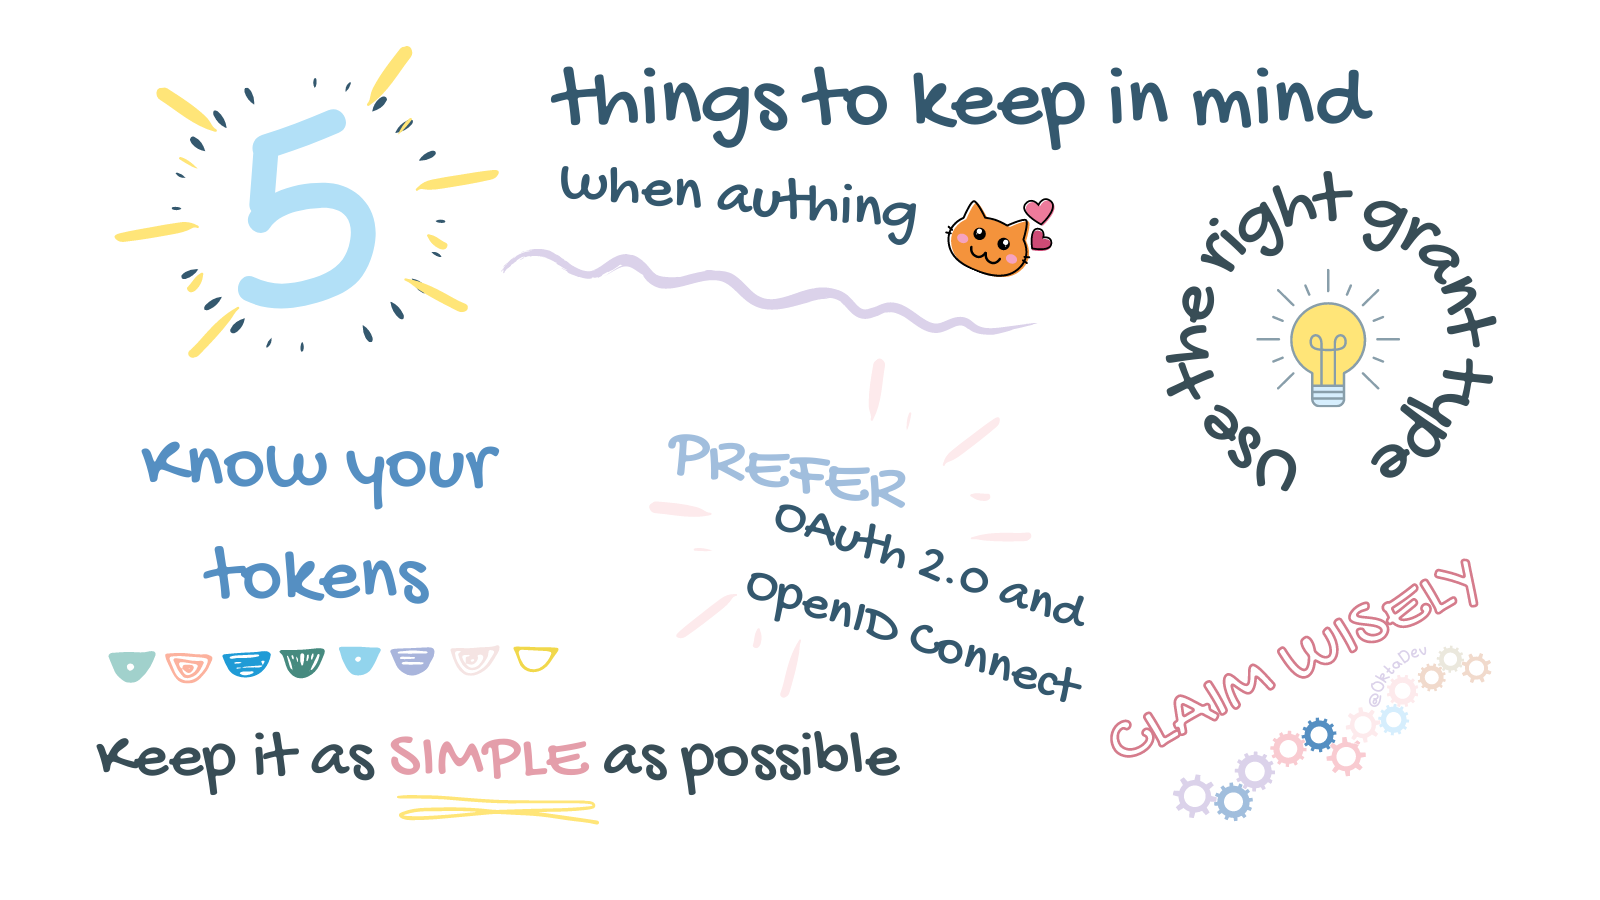 5
things to keep in mind
when authing
Use the right grant type
Know your
tokens
PREFER
OAuth 2.0 and
OpenID Connect
CLAIM WISELY
@OktaDev
Keep it as SIMPLE as possible